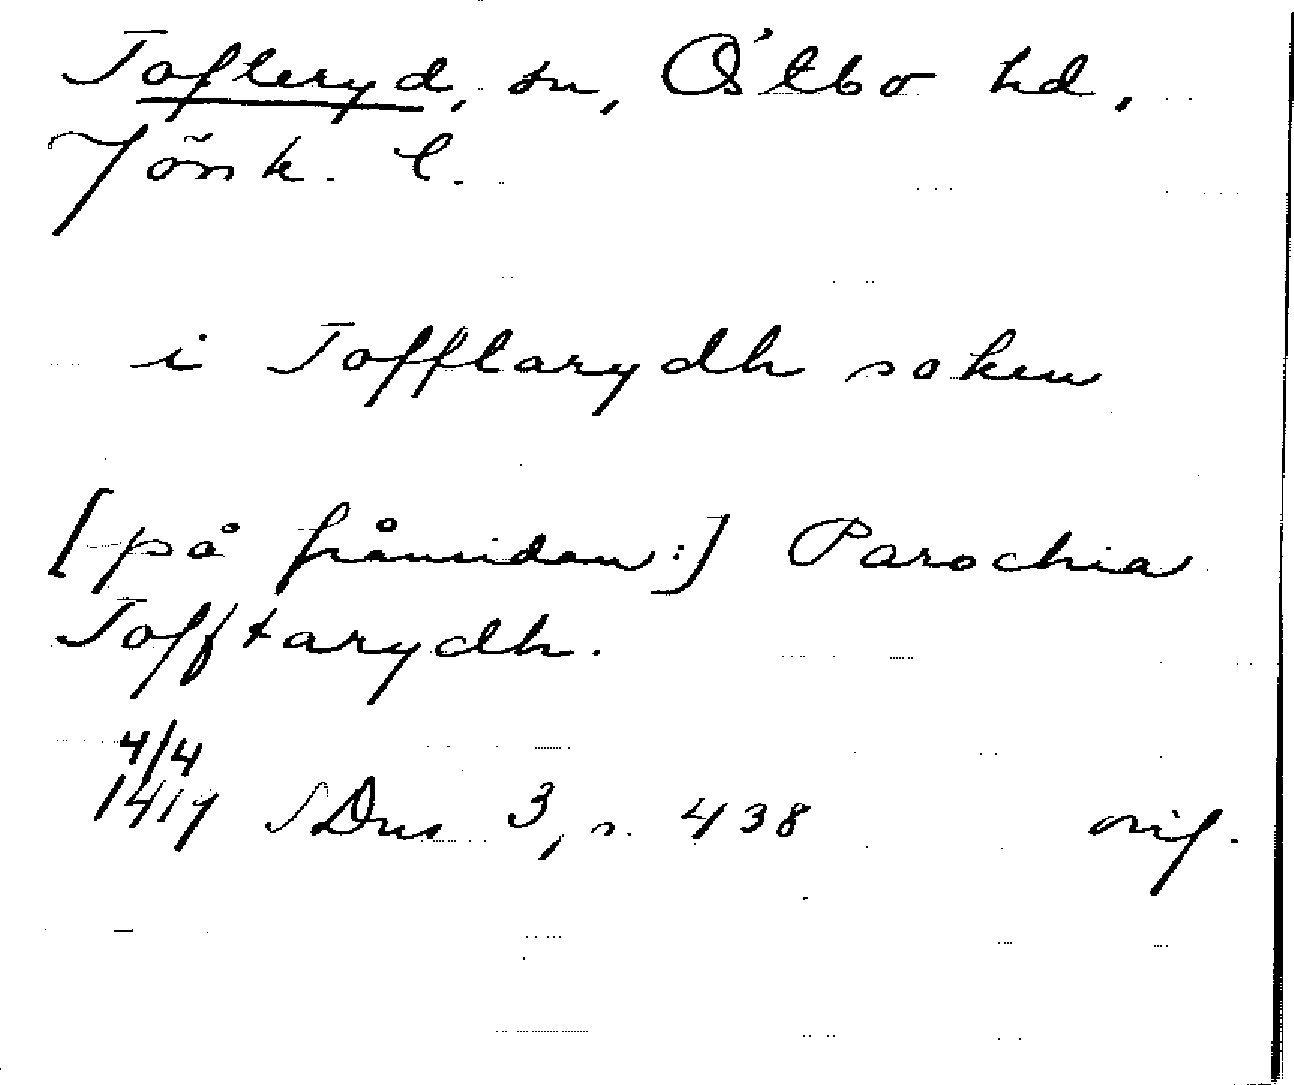 Tofteryd, sn, Östbo hd,
Jönk. l.
i Tofftarydh soken
[på frånsidan:] Parochia
Tofftarydh.
4/4
1417 SDns 3, s. 438 orig.